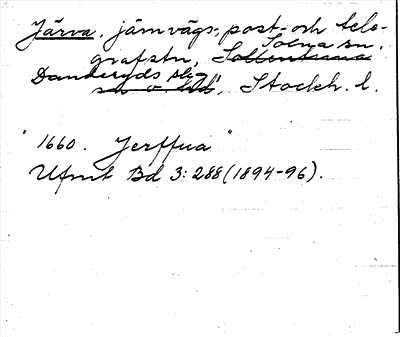 Järva, järnvägs-, post- och tele-
grafstn, Solna sn.
Danderyds skg, Stockh. l.
"1660. Jerffua"
Ufmt Bd 3: 288 (1894-96).